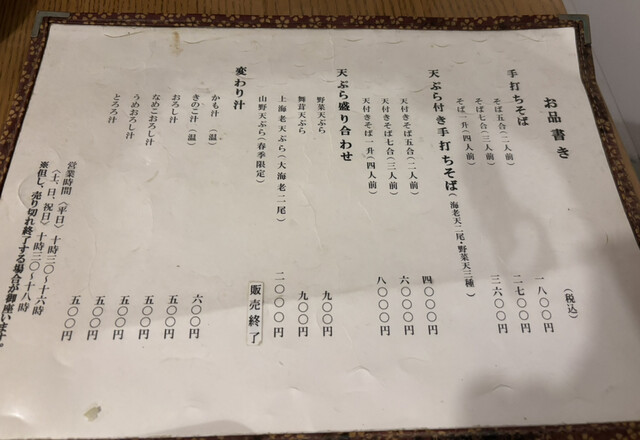 お品書き
(税込)
手打ちそば
そば五合(二人前) 一八〇〇円
そば七合(三人前) 二七〇〇円
そば一升(四人前) 三六〇〇円
天ぷら付き手打ちそば(海老天二尾・野菜天三種)
天付きそば五合(二人前) 四〇〇〇円
天付きそば七合(三人前) 六〇〇〇円
天付きそば一升(四人前) 八〇〇〇円
天ぷら盛り合わせ
野菜天ぷら 九〇〇円
舞茸天ぷら 九〇〇円
上海老天ぷら(大海老二尾) 二〇〇〇円
山野天ぷら(春季限定) 販売終了
変わり汁
かも汁(温) 六〇〇円
きのこ汁(温) 五〇〇円
おろし汁 五〇〇円
なめこおろし汁 五〇〇円
うめおろし汁 五〇〇円
とろろ汁 五〇〇円
営業時間(平日)十時三〇～十六時
(土、日、祝日)十時三〇～十八時
※但し、売り切れ終了する場合が御座います。